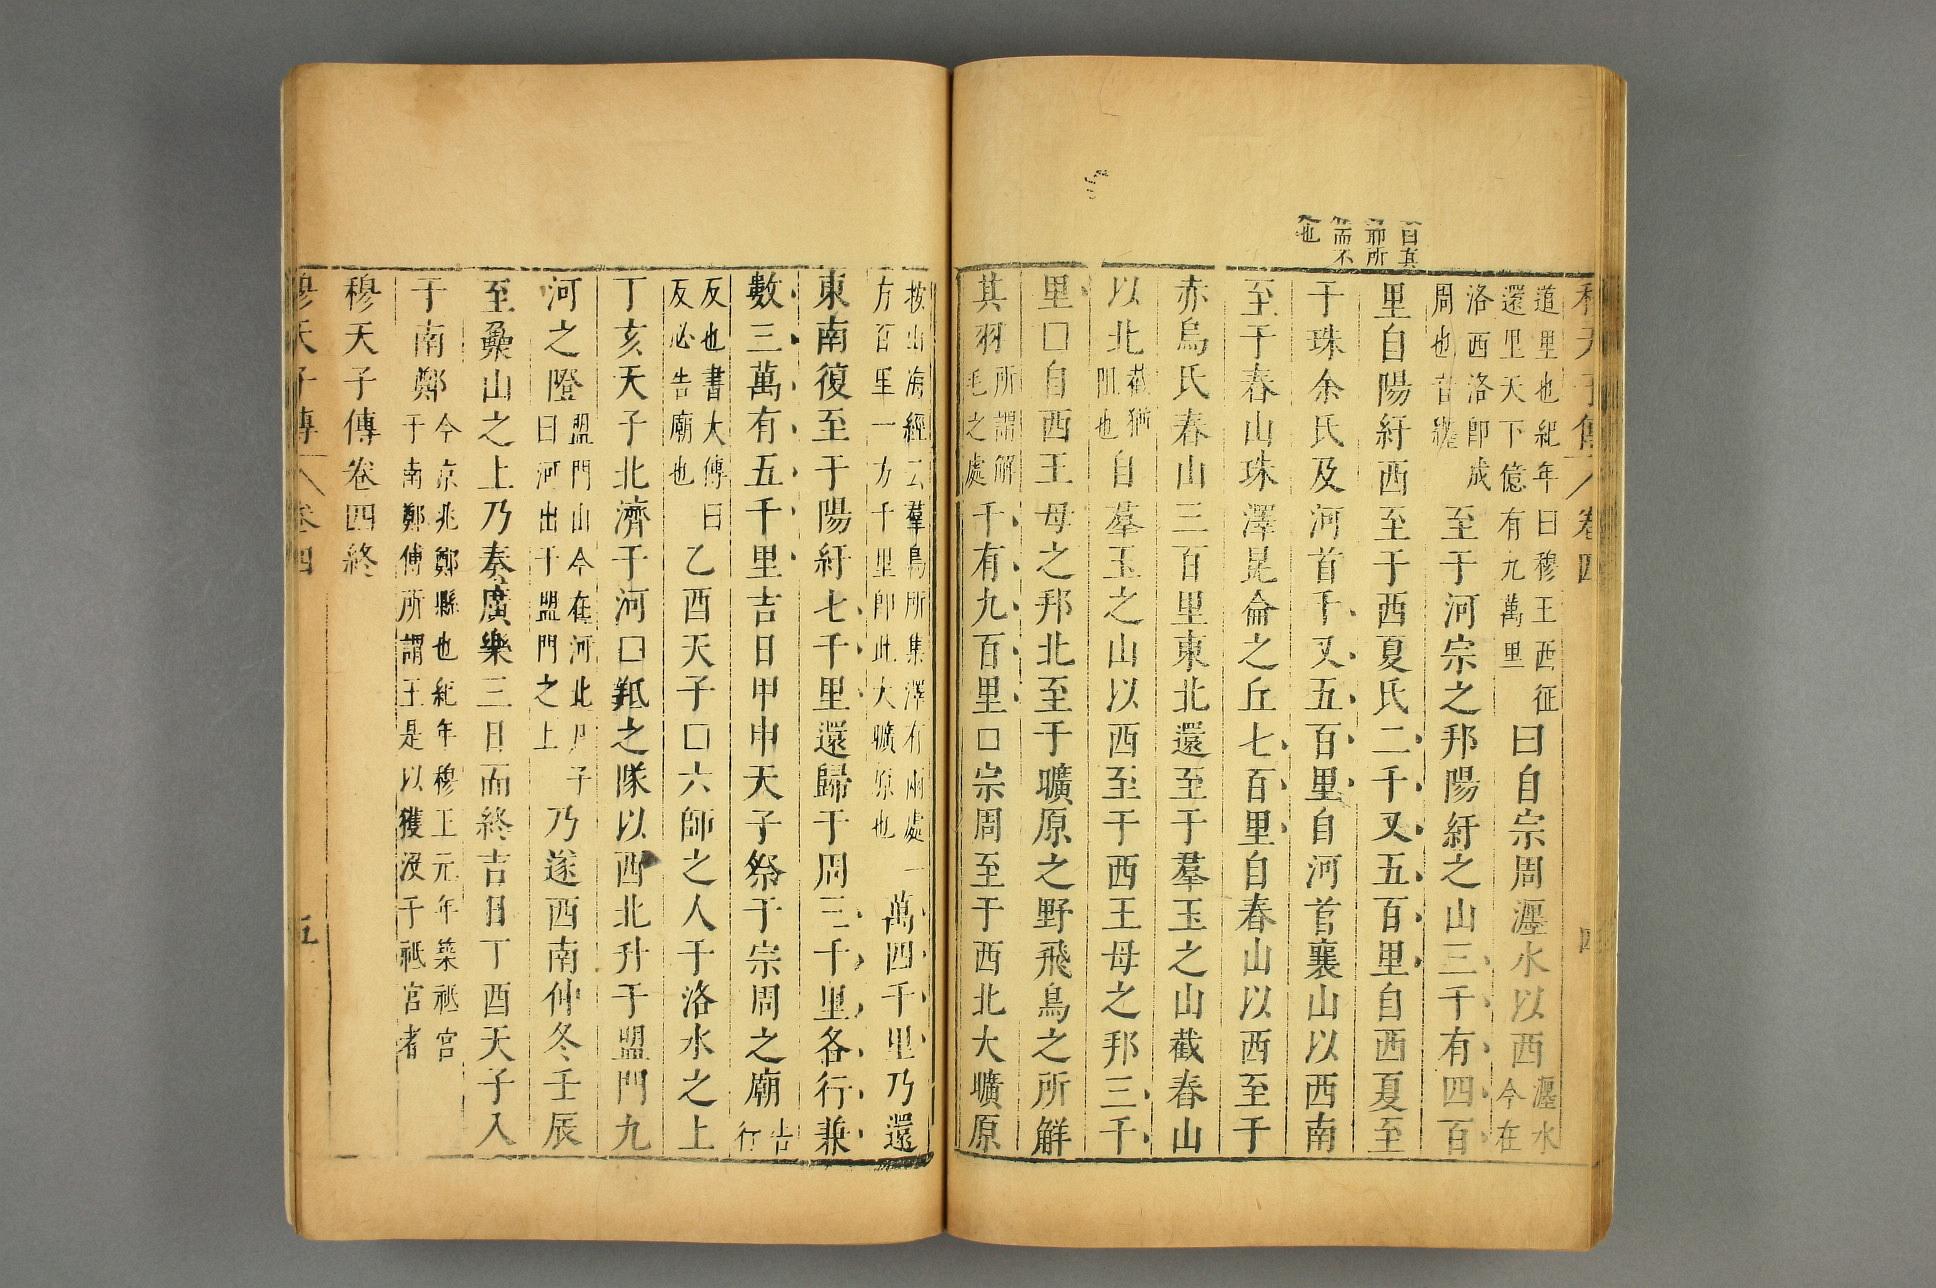 穆天子傳 卷四 四
道里也紀年曰穆王西征還里天下億有九萬里曰自宗周瀍水以西瀍水今在
洛西洛即成周也昔至于河宗之邦陽紆之山三千有四百
里自陽紆西至于西夏氏二千又五百里自西夏至
于珠余氏及河首千又五百里自河首襄山以西南
至于舂山珠澤昆侖之丘七百里自舂山以西至于
赤烏氏舂山三百里東北還至于羣玉之山截舂山
以北截猶阻也自羣玉之山以西至于西王母之邦三千
里□自西王母之邦北至于曠原之野飛鳥之所解
其羽所謂解毛之處千有九百里□宗周至于西北大曠原
按山海經云羣鳥所集澤有兩處一方百里一方千里即此大曠原也萬四千里乃還
東南復至于陽紆七千里還歸于周三千里各行兼
數三萬有五千里吉日甲申天子祭于宗周之廟告行
反也書大傳曰反必告廟也乙酉天子□六師之人于洛水之上
丁亥天子北濟于河□羝之隊以西北升于盟門九
河之隥盟門山今在河北尸子曰河出于盟門之上乃遂西南仲冬壬辰
至㶟山之上乃奏廣樂三日而終吉日丁酉天子入
于南鄭今京兆鄭縣也紀年穆王元年築祗宮于南鄭傳所謂王是以獲沒于祗宮者
穆天子傳卷四終
穆天子傳 卷四 五